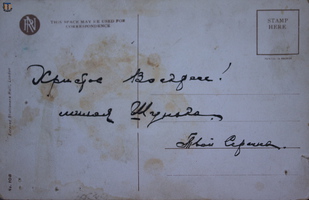 THIS SPACE MAY BE USED FOR
CORRESPONDENCE
STAMP
HERE
Христос Воскрес!
милая Шурка.
Твой Сережа.